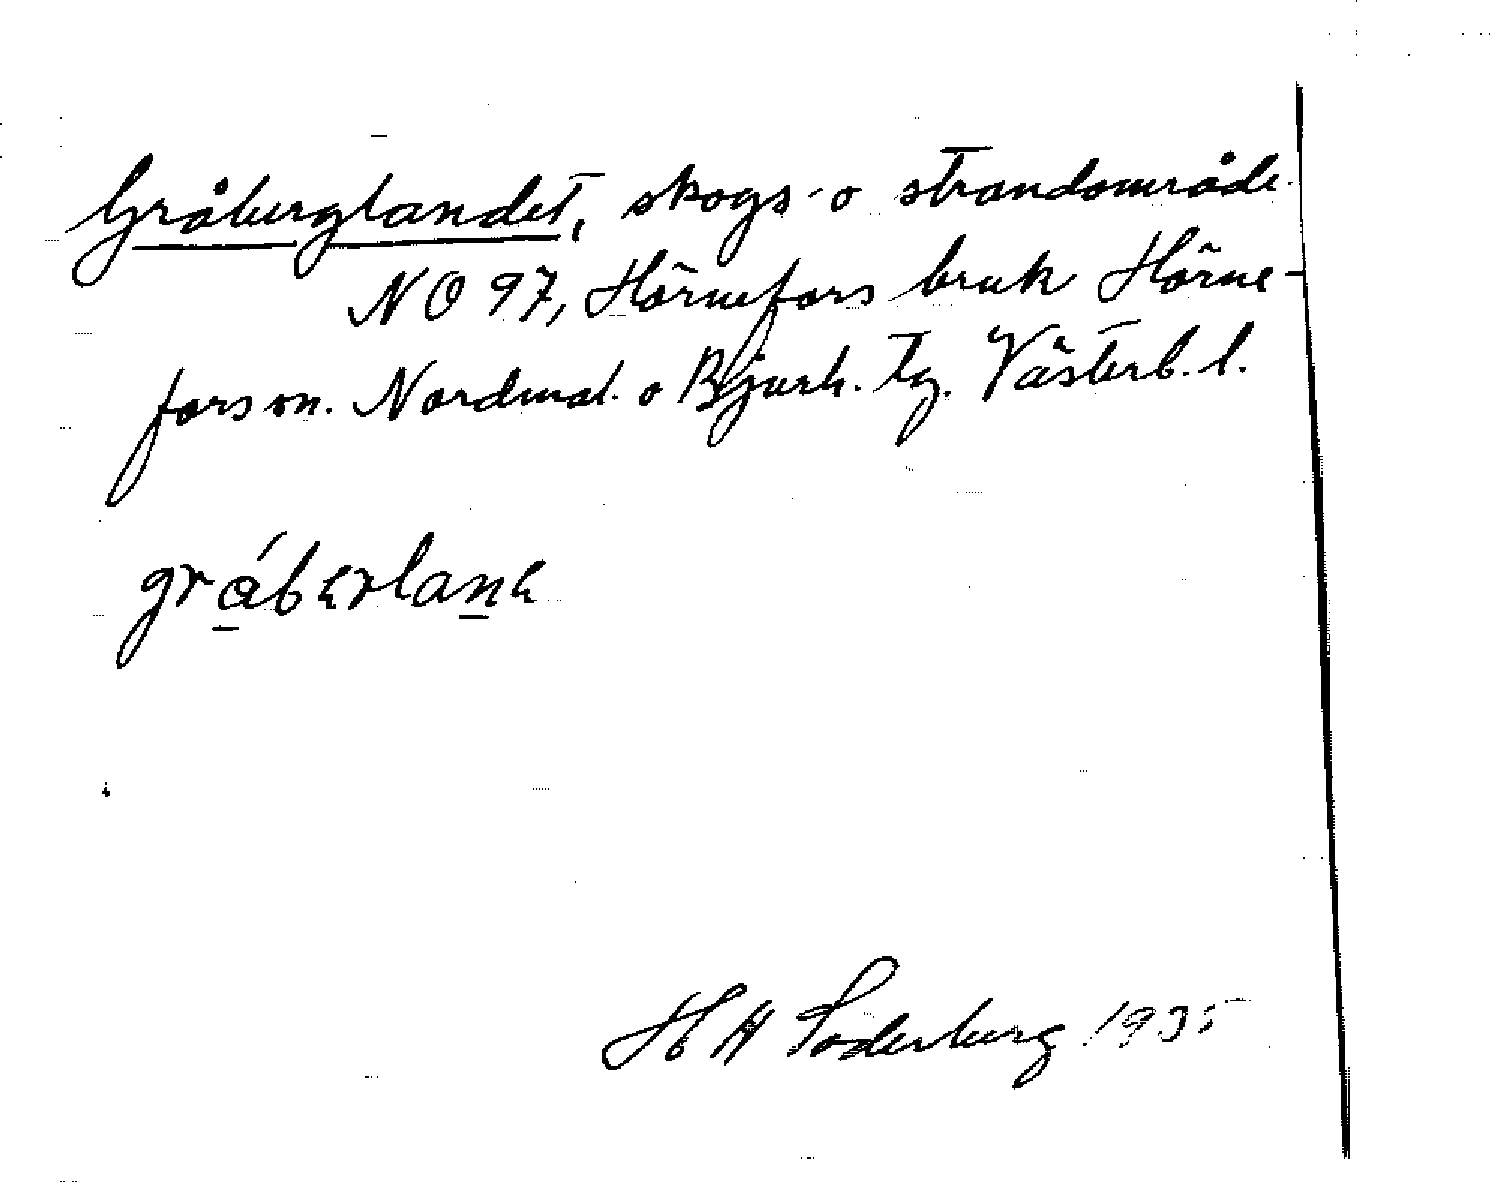 Gråberglandet, skogs- o strandområde
NO 97, Hörnefors bruk Hörne-
fors sn. Nordmal. o Bjurh. tg. Västerb. l.
gråberlanɛ
H H Söderberg 1935